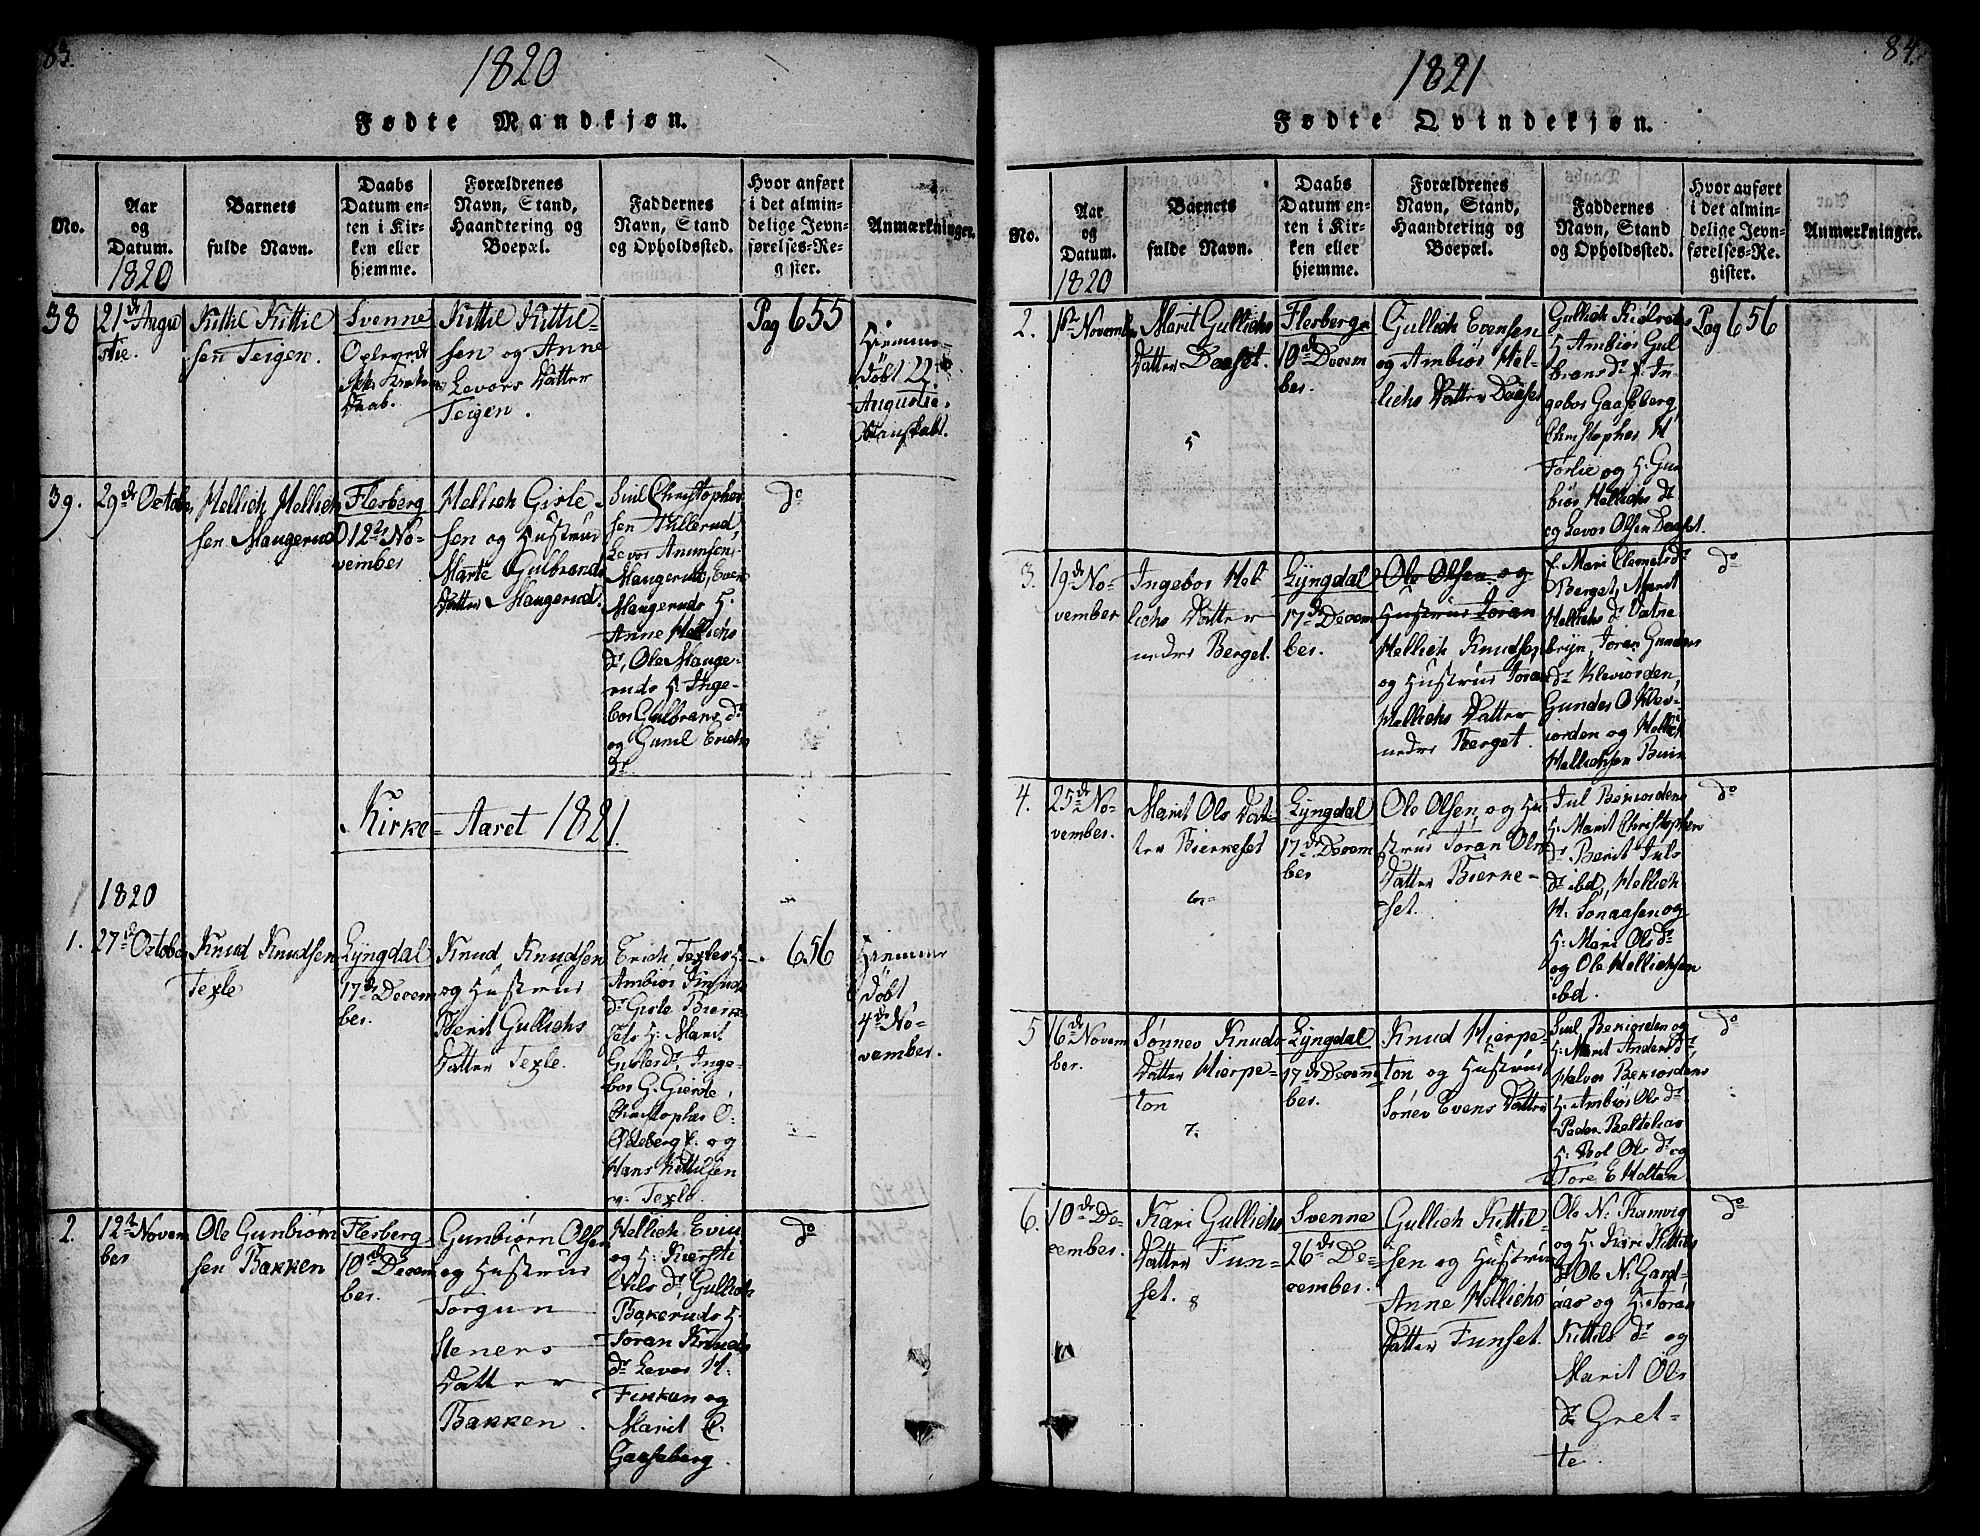 83.
1820
Fødte Mandkjøn.
No.
Aar
og
Datum.
1820
Barnets
fulde Navn.
Daabs
Datum en-
ten i Kir-
ken eller
hjemme.
Forældrenes
Navn, Stand,
Haandtering og
Boepæl.
Faddernes
Navn, Stand
og Opholdssted.
Hvor anført
i det almin-
delige Jevn-
førelses-Re-
gister.
Anmærkninger.
38
21de Augu
stie.
Kittil Kittil
sen Teigen.
Svenne
Daab.
Kittil Kittil-
sen og Anne
Levors Datter
Teigen.
Pag 655
Hiemme
døbt 22de
Augustie
39.
29de October
Hellich Hellich
sen Maugerud
Flesberg
D 12te No-
vember
Hellich Gisle-
sen og Hustrue
Marte Gulbrands
Datter Maugerud.
Juul Christopher
sen Tullerud,
Levor Anunsen
Maugerud, Even
Maugeruds H:
Anne Hellichs
dr, Ole Mauge-
ruds H: Inge-
bor Gulbrans dr
og Gunil Erichs
dr
do
Kirke-Aaret 1821.
1820
1.
27de October
Knud Knudsen
Texle
Lyngdal
17de Decem
ber.
Knud Knudsen
og Hustrue
Berit Gullichs
Datter Texle.
Erich Texles H:
Ambiør Knuds
dr Gisle Bierke-
sets H: Marit
Gislesdr, Inge-
bor G. Gierde,
Christopher O:
Ødeberg f. og
Hans Kittilsen
n: Texle.
656
Hiemme
døbt
4de No-
vember.
2.
12te Novem
ber
Ole Gunbiørn
sen Bakken
Flesberg
10de Decem
ber.
Gunbiørn Olsen
og Hustrue
Torgun
Steners
Datter
Bakken.
Hellich Eviu
og H: Kiersti
Nils dr, Gullich
Bakeruds H:
Joran Knuds
dr Levor H:
Fikkan og
Marit P.
Gaaseberg.
do
84.
1821
Fødte Qvindekjøn.
No.
Aar
og
Datum.
1820
Barnets
fulde Navn.
Daabs
Datum en-
ten i Kir-
ken eller
hjemme.
Forældrenes
Navn, Stand,
Haandtering og
Boepæl.
Faddernes
Navn, Stand
og Opholdssted.
Hvor anført
i det almin-
delige Jevn-
førelses-Re-
gister.
Anmærkninger.
2.
1ste November
Marit Gullichs
Datter Daaset.
5
Flesberg
10de Decem
ber.
Gullich Evensen
og Ambiør Hel-
lichs Datter Daaset
H: Ambiør Gul
brans dr f. In-
gebor Gaaseberg,
Christopher H
Førlie og H: Gun
biør Hellichs dr
og Levor Olsen Daaset.
Pag 656
3.
19de No-
vember
Ingebor Hel
lichs Datter
nedre Berget.
Lyngdal
17de Decem
ber.
Ole Olsen og
Hustrue Joran
Hellich Knudsen
og Hustrue Joran
Hellichs Datter
nedre Berget.
f. Mari Clemetsdr
Berget, Marit
Hellichs dr Vatne
bryn, Joran Gunders
dr Kleviorden,
Gunder O Klev-
iorden og Hellich
Hellichsen
do
4.
25de No-
vember.
Marit Ols Dat-
ter Bierkeset
6
Lyngdal
17de Decem
ber
Ole Olsen og Hu
strue Joran Ols
Datter Bierke-
set.
Jul Bekiordens
H: Marit Christopher
dr Berit Juls
dr ibd, Hellich
H: Sønaasen og
H: Mari Ols dr
og Ole Hellichsen
ibd.
do
5
16de Novem
ber.
Sønnev Knuds
Datter Hierpe-
ton
7.
Lyngdal
17de Decem
ber.
Knud Hierpe-
ton og Hustrue
Sønev Evens Datter
Juul Bekiorden og
H: Marit Anders dr,
Halvor Bekiordens
H: Ambiør Ols dr
H: Ols dr og
Tore E Holtan
do
6.
10de De-
cember.
Kari Gullichs
Datter Fun-
set.
8
Svenne
26de De-
cember.
Gullich Kittil-
sen og Hustrue
Anne Hellichs
Datter Funset.
Ole N: Ramvig
og H: Kari Kittils
dr Ole N: Gard-
aas og H: Joran
Kittils dr og
Marit Ols
dr Gret-
te.
do